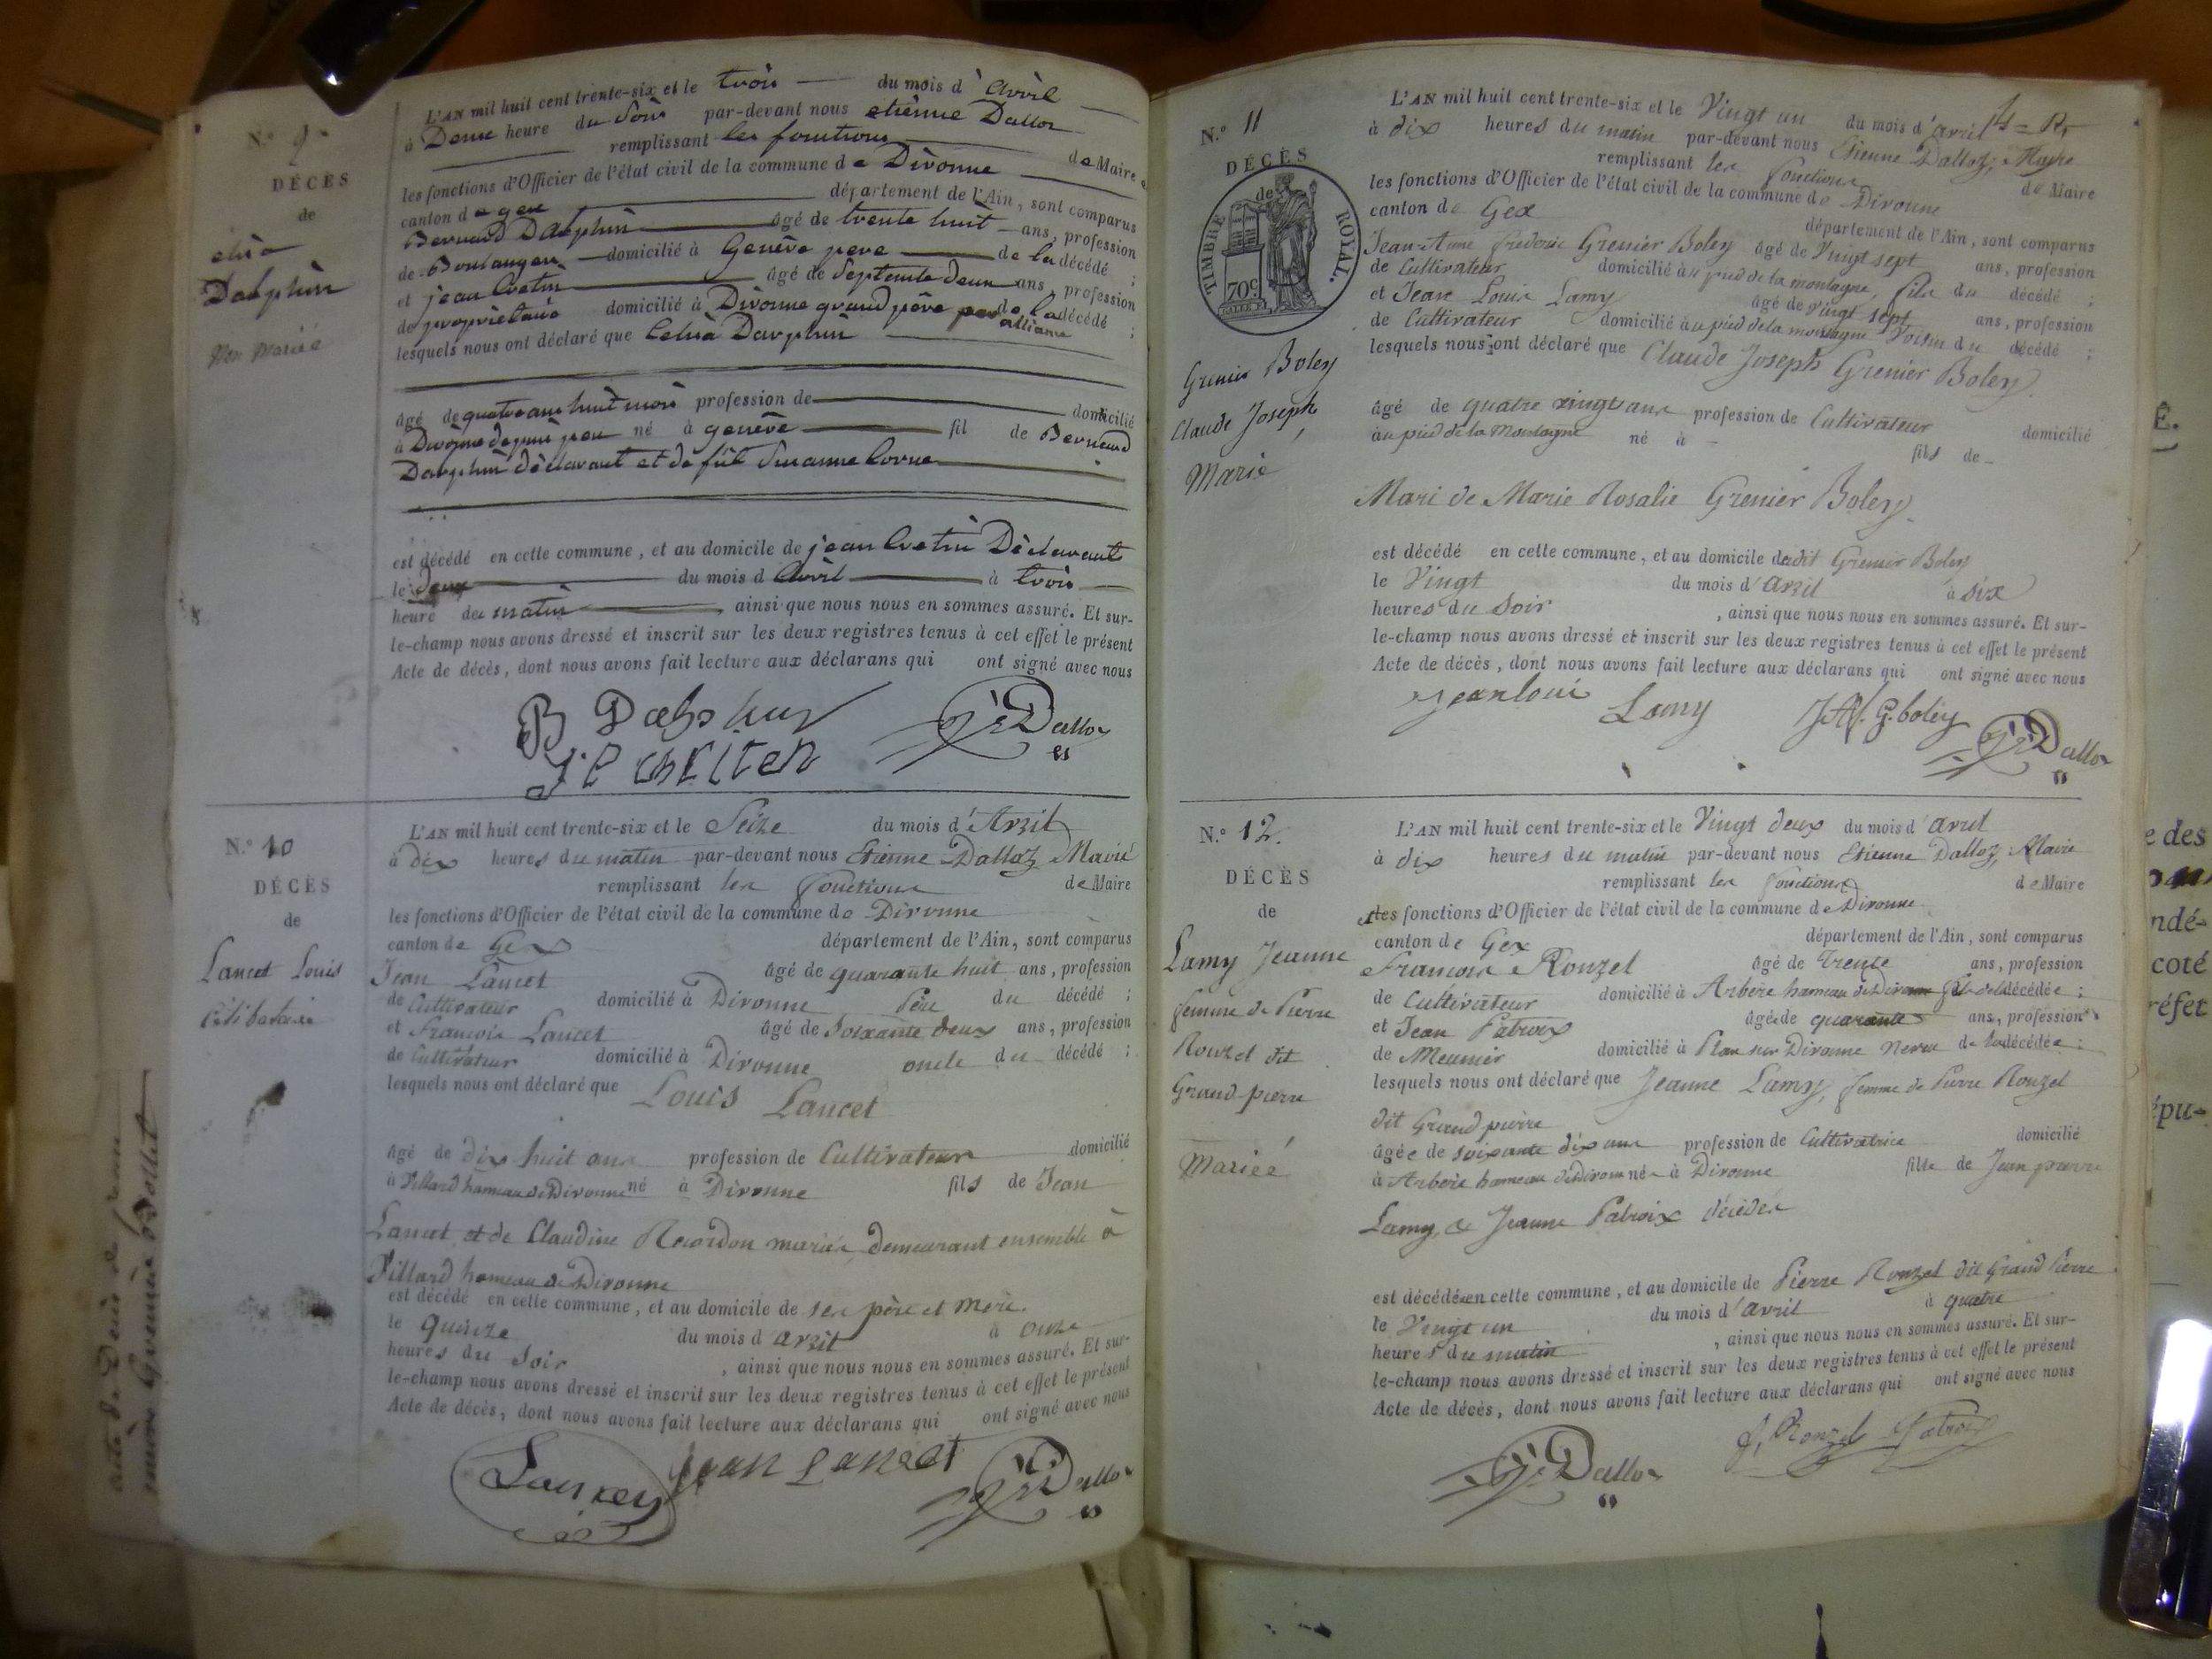 N.º 9
DÉCÈS
de
Dalphin
Non Marié
L'AN mil huit cent trente-six et le trois du mois d' Avril
à Deux heure du Soir par-devant nous etienne Dalloz
remplissant les fonctions de Maire
les fonctions d'Officier de l'état civil de la commune de Divonne
canton de gex département de l'Ain, sont comparus
Bernard Dalphin âgé de trente huit ans, profession
de Boulanger domicilié à Genève pere de la décédé ;
et jean Cretin âgé de Septente Deux ans, profession
de propriétaire domicilié à Divonne grand père par alliance de la décédé ;
lesquels nous ont déclaré que Dauphin
âgé de quatre ans huit mois profession de domicilié
à Divonne depuis peu né à genève fil de Bernard
Dauphin déclarant et de fût Suzanne
est décédé en cette commune, et au domicile de jean Cretin Déclarant
le deux du mois d Avril à trois
heure du matin , ainsi que nous nous en sommes assuré. Et sur-
le-champ nous avons dressé et inscrit sur les deux registres tenus à cet effet le présent
Acte de décès, dont nous avons fait lecture aux déclarans qui ont signé avec nous
B Dalphin
Dalloz
N.º 10
DÉCÈS
de
Lancet Louis
célibataire
L'AN mil huit cent trente-six et le Seize du mois d' Avril
à dix heures du matin par-devant nous Etienne Dalloz Maire
remplissant les fonctions de Maire
les fonctions d'Officier de l'état civil de la commune de Divonne
canton de Gex département de l'Ain, sont comparus
Jean Lancet âgé de quarante huit ans, profession
de Cultivateur domicilié à Divonne Père du décédé ;
et François Lancet âgé de Soixante deux ans, profession
de Cultivateur domicilié à Divonne oncle du décédé ;
lesquels nous ont déclaré que Louis Lancet
âgé de dix huit ans profession de Cultivateur domicilié
à Villard hameau de Divonne né à Divonne fils de Jean
Lancet et de Claudine Recordon mariés demeurant ensemble à
Villard hameau de Divonne
est décédé en cette commune, et au domicile de ses père et mère.
le quinze du mois d avril à onze
heures du Soir , ainsi que nous nous en sommes assuré. Et sur-
le-champ nous avons dressé et inscrit sur les deux registres tenus à cet effet le présent
Acte de décès, dont nous avons fait lecture aux déclarans qui ont signé avec nous
jean Lanset
Dalloz
N.º 11
DÉCÈS
de
TIMBRE ROYAL.
70c
Grenier Boley
Claude Joseph
Marié
L'AN mil huit cent trente-six et le Vingt un du mois d' avril
à dix heures du matin par-devant nous Etienne Dalloz, Maire
remplissant les fonctions de Maire
les fonctions d'Officier de l'état civil de la commune de Divonne
canton de Gex département de l'Ain, sont comparus
Jean-Aime frederic Grenier Boley âgé de Vingt sept ans, profession
de Cultivateur domicilié au pied de la montagne fils du décédé ;
et Jean Louis Lamy âgé de vingt sept ans, profession
de Cultivateur domicilié au pied de la montagne Voisin du décédé ;
lesquels nous ont déclaré que Claude Joseph Grenier Boley
âgé de quatre vingt ans profession de Cultivateur domicilié
au pied de la Montagne né à – fils de –
Mari de Marie Rosalie Grenier Boley
est décédé en cette commune, et au domicile dudit Grenier Boley
le Vingt du mois d' avril à six
heures du soir , ainsi que nous nous en sommes assuré. Et sur-
le-champ nous avons dressé et inscrit sur les deux registres tenus à cet effet le présent
Acte de décès, dont nous avons fait lecture aux déclarans qui ont signé avec nous
jeanloui Lamy G. boley
Dalloz
N.º 12.
DÉCÈS
de
Lamy Jeanne
femme de Pierre
Rouzet dit
Grand-pierre
Mariée
L'AN mil huit cent trente-six et le Vingt deux du mois d' avril
à dix heures du matin par-devant nous Etienne Dalloz Maire
remplissant les fonctions de Maire
les fonctions d'Officier de l'état civil de la commune de Divonne
canton de Gex département de l'Ain, sont comparus
François Rouzet âgé de Trente ans, profession
de Cultivateur domicilié à Arbère hameau de Divonne fils de la décédée ;
et Jean Patroix âgé de quarante ans, profession
de Meunier domicilié à Plan sur Divonne Neveu de la décédée ;
lesquels nous ont déclaré que Jeanne Lamy, femme de Pierre Rouzet
dit Grand pierre
âgée de soixante dix ans profession de Cultivatrice domicilié
à Arbère hameau de Divonne née à Divonne fille de Jean pierre
Lamy, & Jeanne Patroix décédés
est décédée en cette commune, et au domicile de Pierre Rouzet dit Grand Pierre
le Vingt un du mois d' avril à quatre
heures du matin , ainsi que nous nous en sommes assuré. Et sur-
le-champ nous avons dressé et inscrit sur les deux registres tenus à cet effet le présent
Acte de décès, dont nous avons fait lecture aux déclarans qui ont signé avec nous
Dalloz
f, Rouzet Patroix
e des
ndé-
coté
réfet
épu-